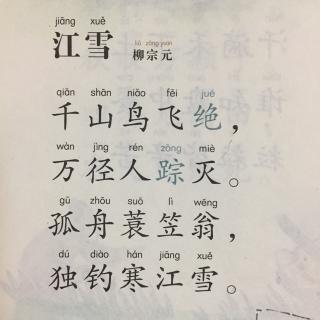 jiāng xuě
江雪
liǔ zōng yuán
柳宗元
qiān shān niǎo fēi jué
千山鸟飞绝，
wàn jìng rén zōng miè
万径人踪灭。
gū zhōu suō lì wēng
孤舟蓑笠翁，
dú diào hán jiāng xuě
独钓寒江雪。